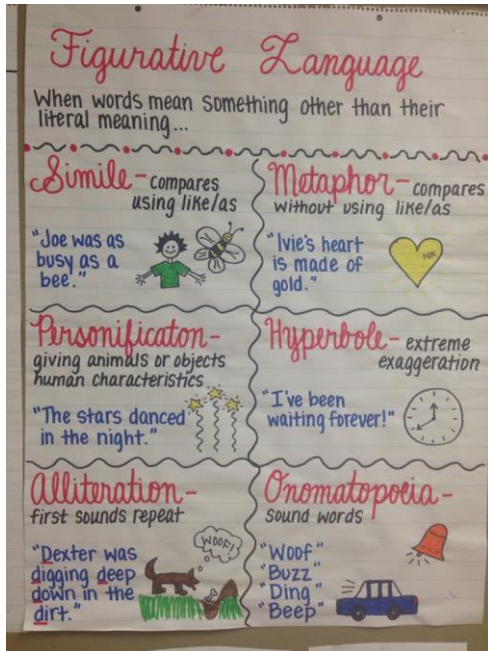 Figurative Language
When words mean something other than their
literal meaning...
Simile - compares
using like/as
"Joe was as
busy as a
bee."
Metaphor - compares
without using like/as
"Ivie's heart
is made of
gold."
Personificaton -
giving animals or objects
human characteristics
"The stars danced
in the night."
Hyperbole - extreme
exaggeration
"I've been
waiting forever!"
Alliteration -
first sounds repeat
"Dexter was
digging deep
down in the
dirt."
WOOF!
Onomatopoeia -
sound words
"Woof"
"Buzz"
"Ding"
"Beep"